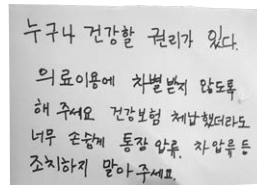 누구나 건강할 권리가 있다.
의료이용에 차별받지 않도록
해 주세요 건강보험 체납했더라도
너무 손쉽게 통장 압류, 차압류 등
조치하지 말아주세요.